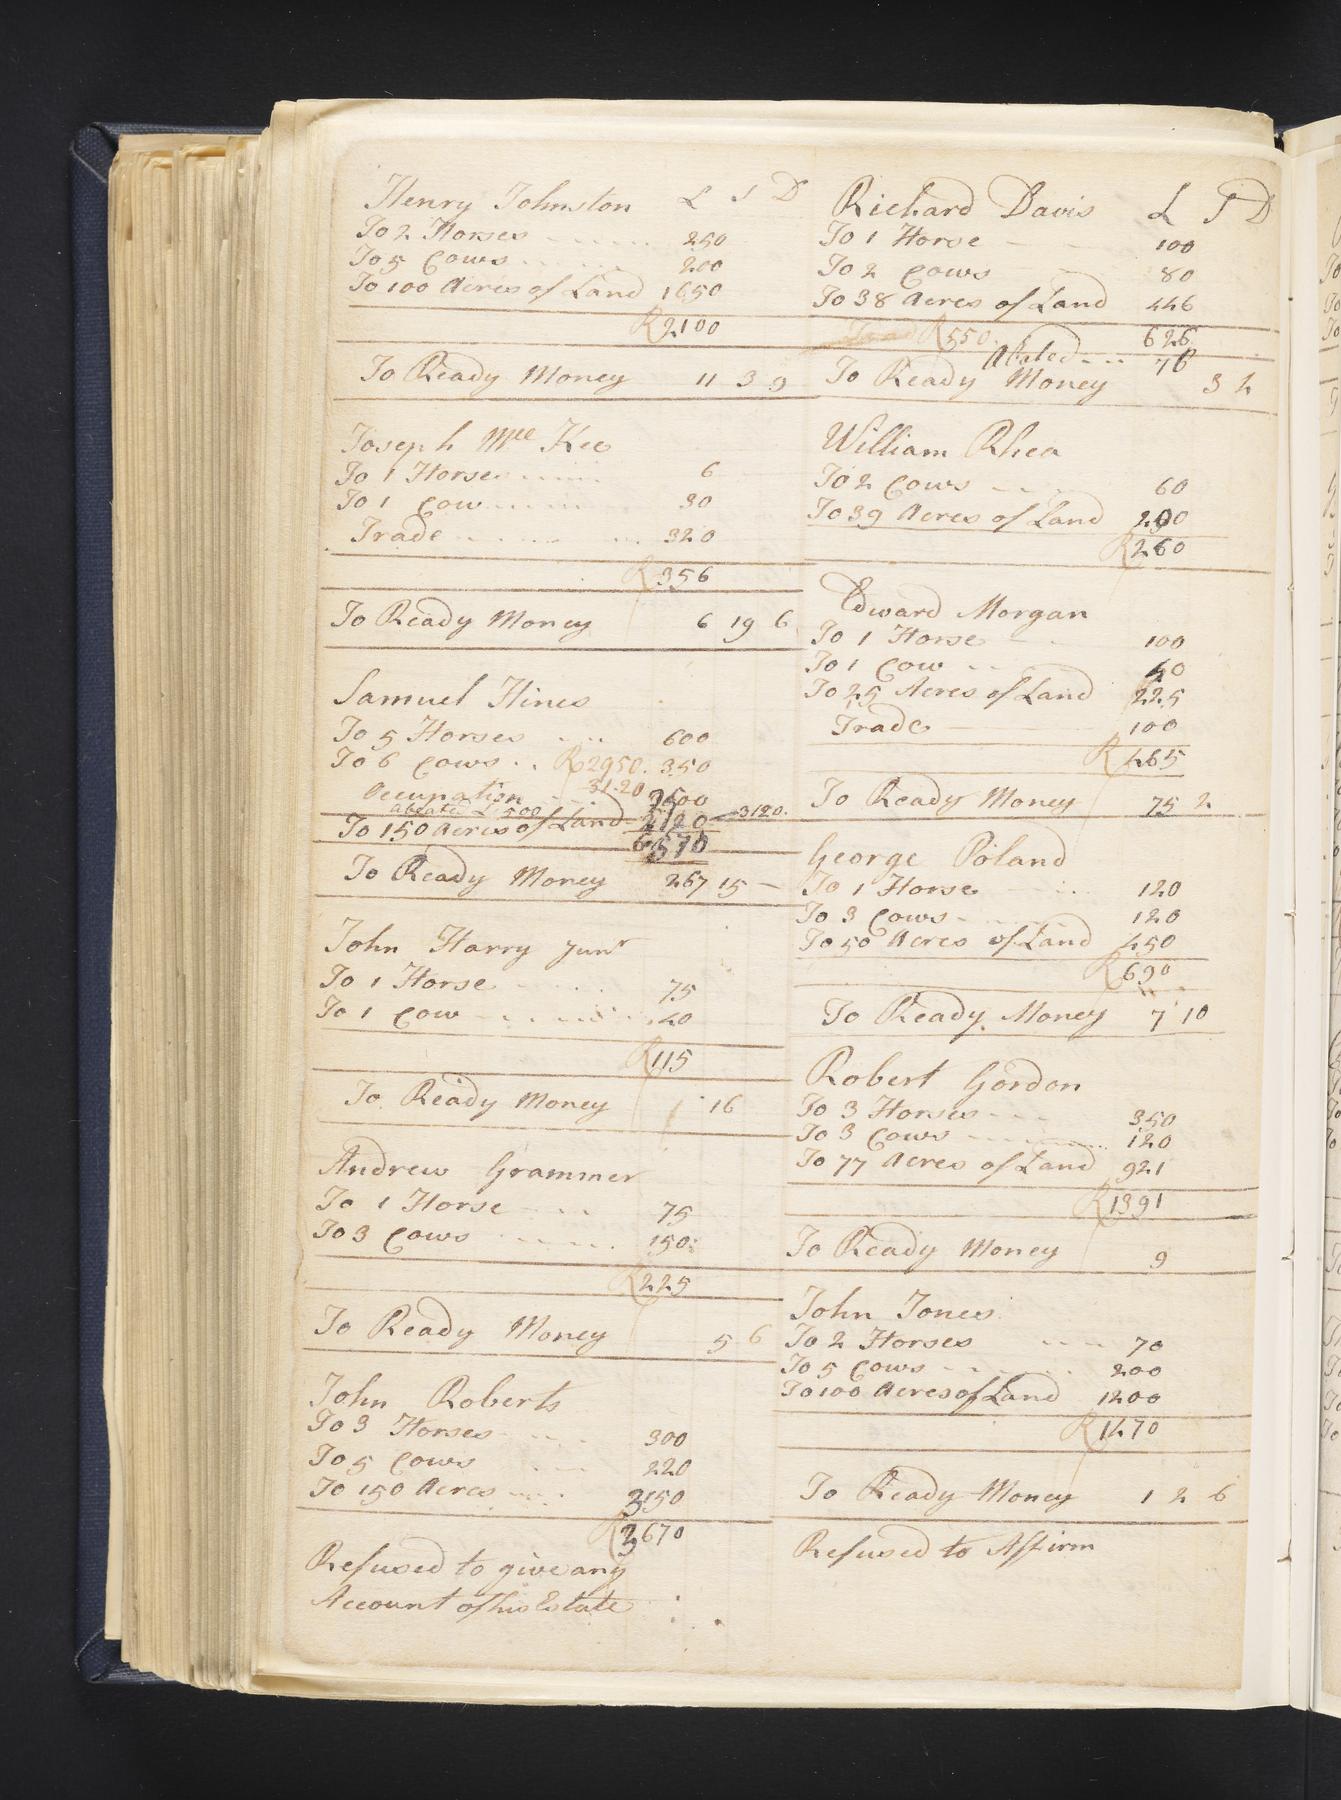 Henry Johnston L S D
To 2 Horses 250
To 5 Cows 200
To 100 Acres of Land 1650
R 2100
To Ready Money 11 3 9
Joseph Mcc Kee
To 1 Horse 6
To 1 Cow 30
Trade 320
R 356
To Ready Money 6 19 6
Samuel Hines
To 5 Horses 600
To 6 Cows R 2950. 350
3120
Occupation
Abated L 500
To 150 Acres of Land 2120 3120.
To Ready Money 267 15 -
John Harry Junr
To 1 Horse 75
To 1 Cow 40
R 115
To Ready Money 16
Andrew Grammer
To 1 Horse 75
To 3 Cows 150
R 225
To Ready Money 5 6
John Roberts
To 3 Horses 300
To 5 Cows 220
To 150 Acres 3150
R 3670
Refused to give any
Account of his Estate
Richard Davis L S D
To 1 Horse 100
To 2 Cows 80
To 38 Acres of Land 446
R 550. 626
Abated 76
To Ready Money 3 4
William Rhea
To 2 Cows 60
To 39 Acres of Land 200
R 260
Edward Morgan
To 1 Horse 100
To 1 Cow 40
To 25 Acres of Land 225
Trade 100
R 465
To Ready Money 75 2
George Poland
To 1 Horse 120
To 3 Cows 120
To 50 Acres of Land 450
R 690
To Ready Money 7 10
Robert Gordon
To 3 Horses 350
To 3 Cows 120
To 77 Acres of Land 921
R 1391
To Ready Money 9
John Jones
To 2 Horses 70
To 5 Cows 200
To 100 Acres of Land 1200
R 1470
To Ready Money 1 2 6
Refused to Affirm